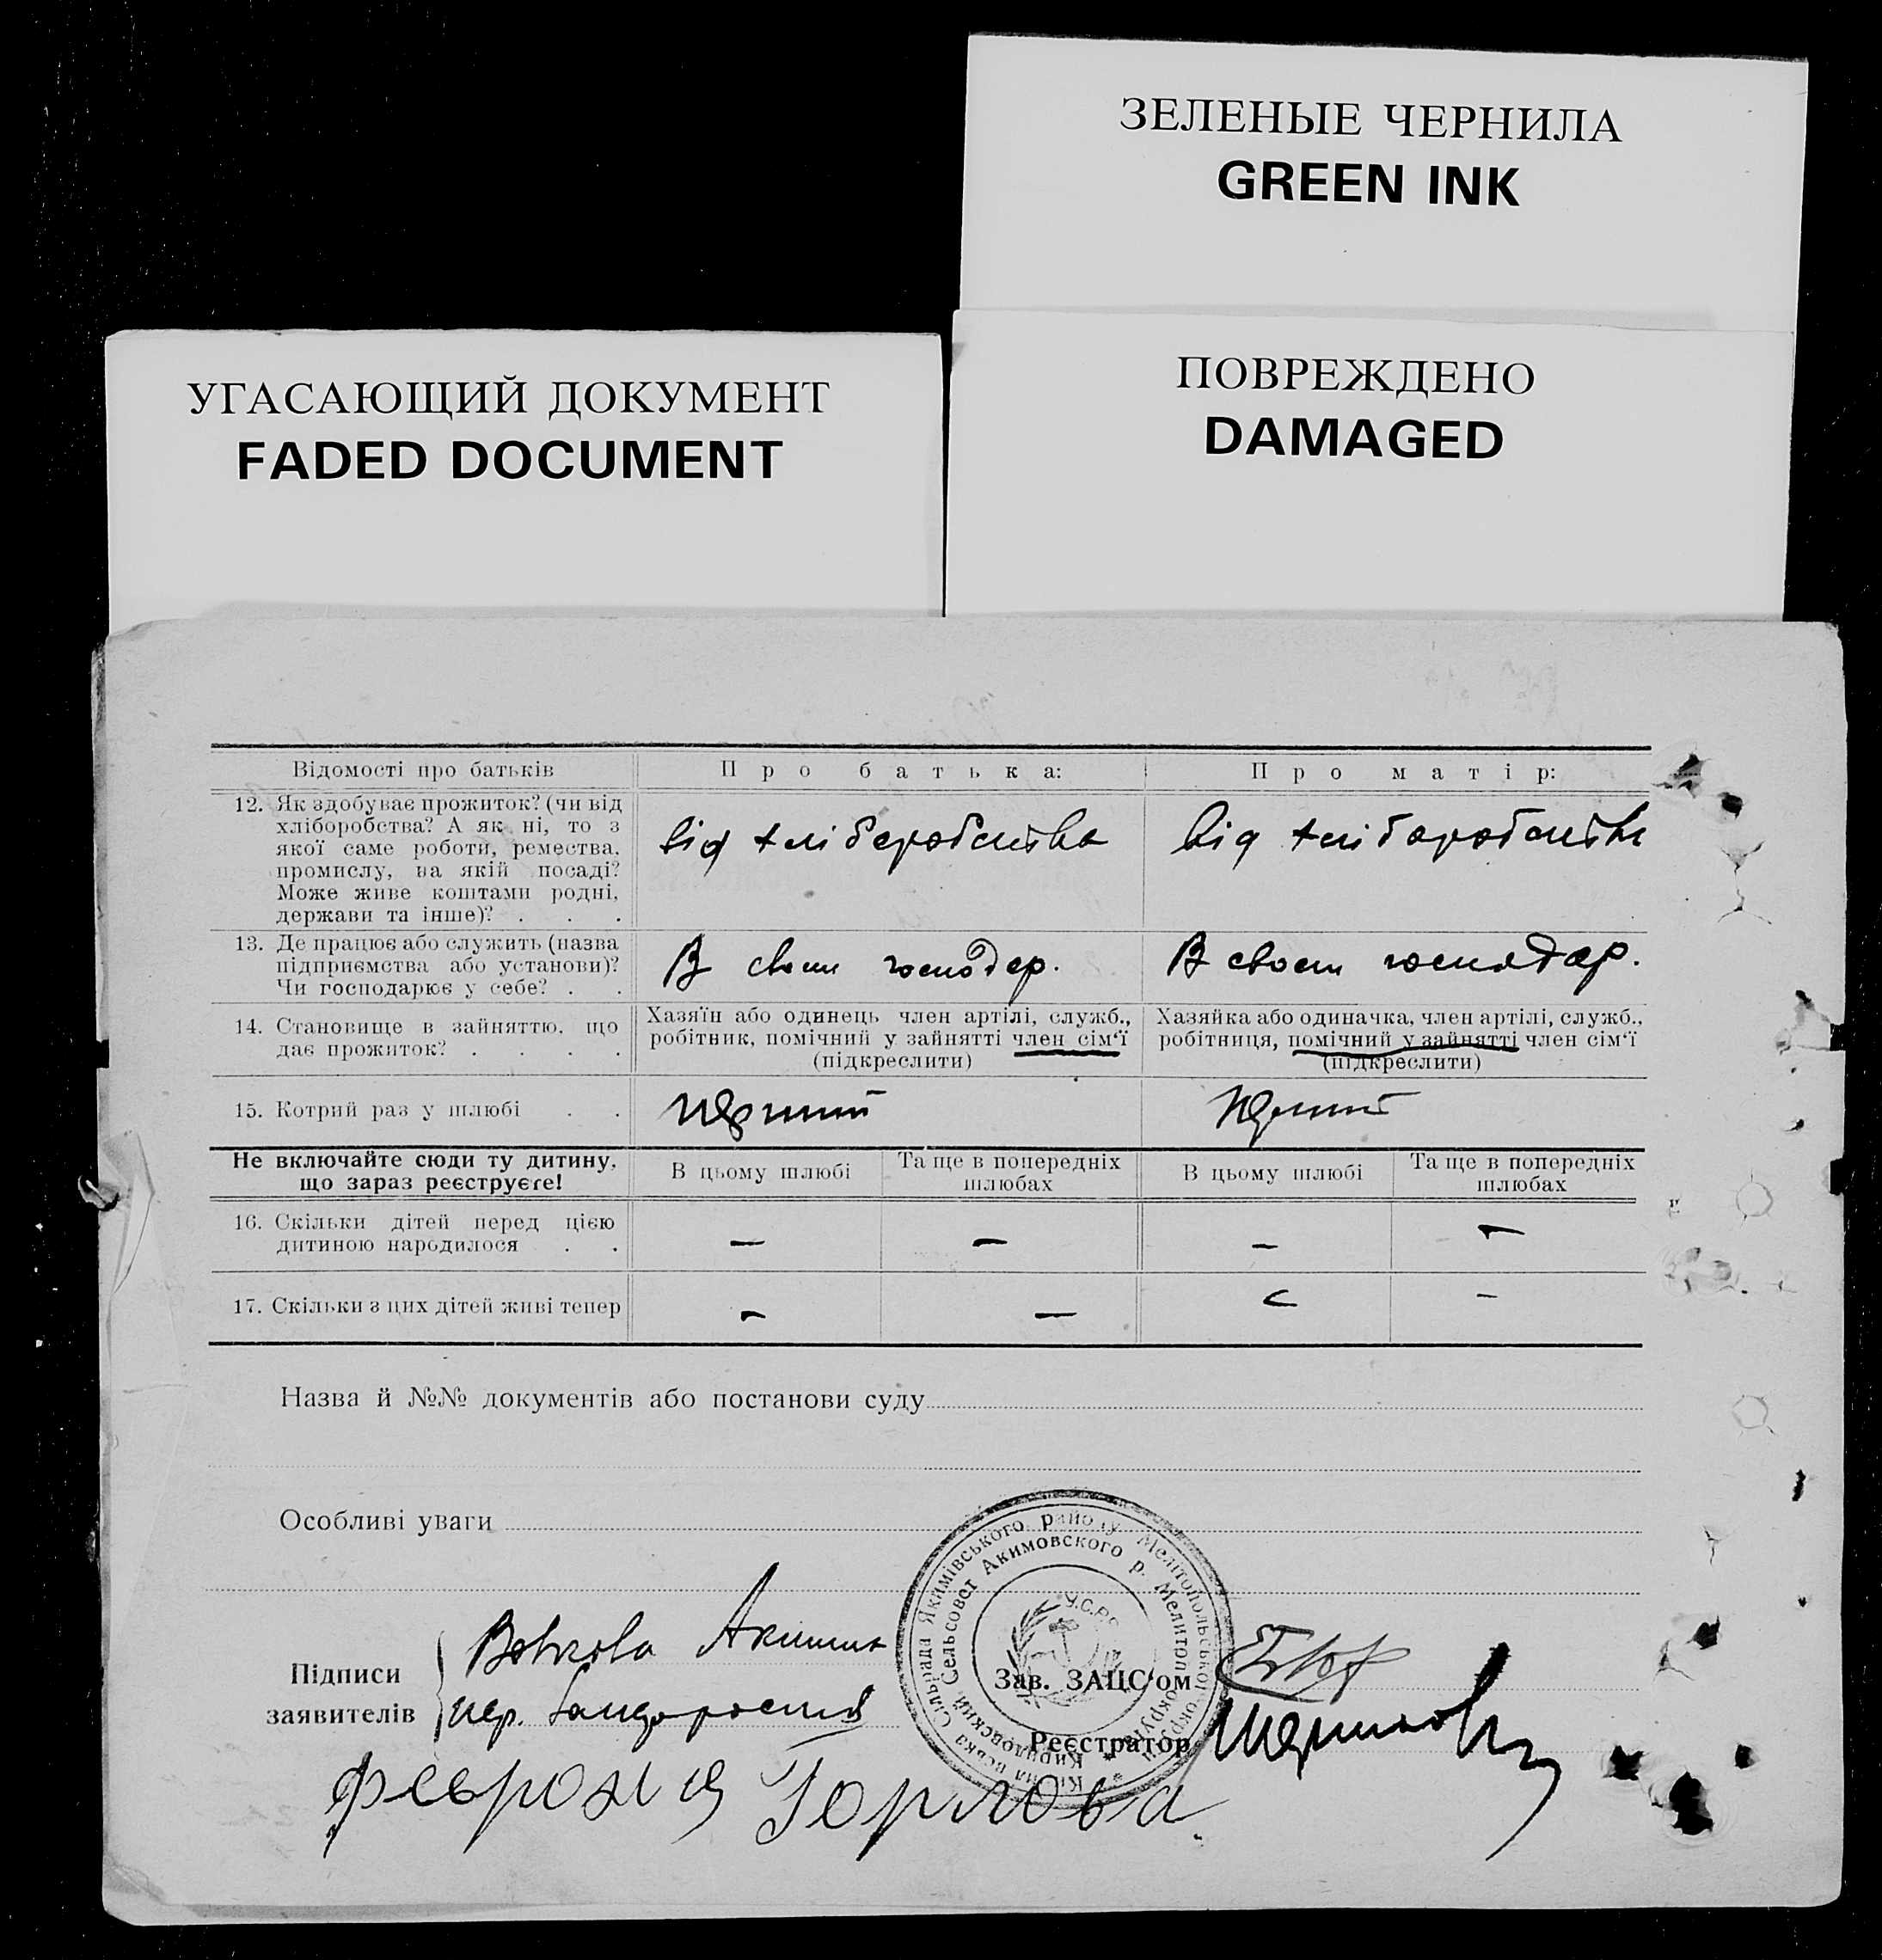 ЗЕЛЕНЫЕ ЧЕРНИЛА
GREEN INK
УГАСАЮЩИЙ ДОКУМЕНТ
FADED DOCUMENT
ПОВРЕЖДЕНО
DAMAGED
Відомості про батьків
Про батька:
Про матір:
12. Як здобуває прожиток? (чи від
хліборобства? А як ні, то з
якої саме роботи, ремества,
промислу, на якій посаді?
Може живе коштами родні,
держави та інше)? . . .
від хліборобства
від хліборобства
13. Де працює або служить (назва
підприємства або установи)?
Чи господарює у себе? . .
В своем господар.
В своем господар.
14. Становище в зайняттю, що
дає прожиток? . . . .
Хазяїн або одинець член артілі, служб.,
робітник, помічний у зайнятті член сім'ї
(підкреслити)
Хазяйка або одиначка, член артілі, служб.,
робітниця, помічний у зайнятті член сім'ї
(підкреслити)
15. Котрий раз у шлюбі . .
перший
перший
Не включайте сюди ту дитину,
що зараз реєструєте!
В цьому шлюбі
Та ще в попередніх
шлюбах
В цьому шлюбі
Та ще в попередніх
шлюбах
16. Скільки дітей перед цією
дитиною народилося . .
— — — —
17. Скільки з цих дітей живі тепер
— — — —
Назва й №№ документів або постанови суду
Особливі уваги
Сільрада Якимівського району Мелітопольської округи
Кирилдовский Сельсовет Акимовского р. Мелитоп. округа
У.С.Р.Р.
Підписи
заявителів
Волкова
Зав. ЗАЦС'ом
Реєстратор
Феврония Горлова